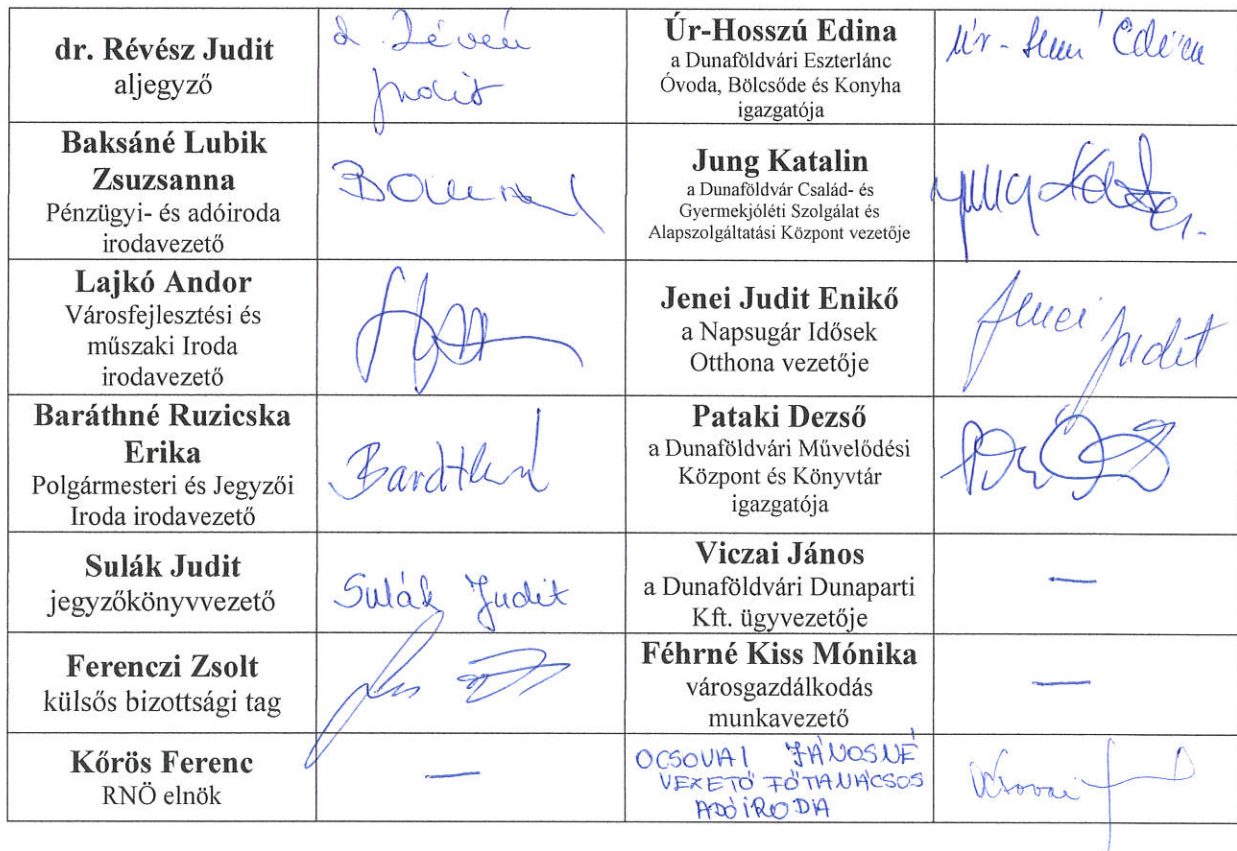 dr. Révész Judit
aljegyző
Judit
Úr-Hosszú Edina
a Dunaföldvári Eszterlánc
Óvoda, Bölcsőde és Konyha
igazgatója
Baksáné Lubik
Zsuzsanna
Pénzügyi- és adóiroda
irodavezető
Jung Katalin
a Dunaföldvár Család- és
Gyermekjóléti Szolgálat és
Alapszolgáltatási Központ vezetője
Lajkó Andor
Városfejlesztési és
műszaki Iroda
irodavezető
Jenei Judit Enikő
a Napsugár Idősek
Otthona vezetője
Jenei Judit
Baráthné Ruzicska
Erika
Polgármesteri és Jegyzői
Iroda irodavezető
Pataki Dezső
a Dunaföldvári Művelődési
Központ és Könyvtár
igazgatója
Sulák Judit
jegyzőkönyvvezető
Sulák Judit
Viczai János
a Dunaföldvári Dunaparti
Kft. ügyvezetője
—
Ferenczi Zsolt
külsős bizottsági tag
Féhrné Kiss Mónika
városgazdálkodás
munkavezető
—
Kőrös Ferenc
RNÖ elnök
—
OCSOVAI JÁNOSNÉ
VEZETŐ FŐTANÁCSOS
ADÓIRODA